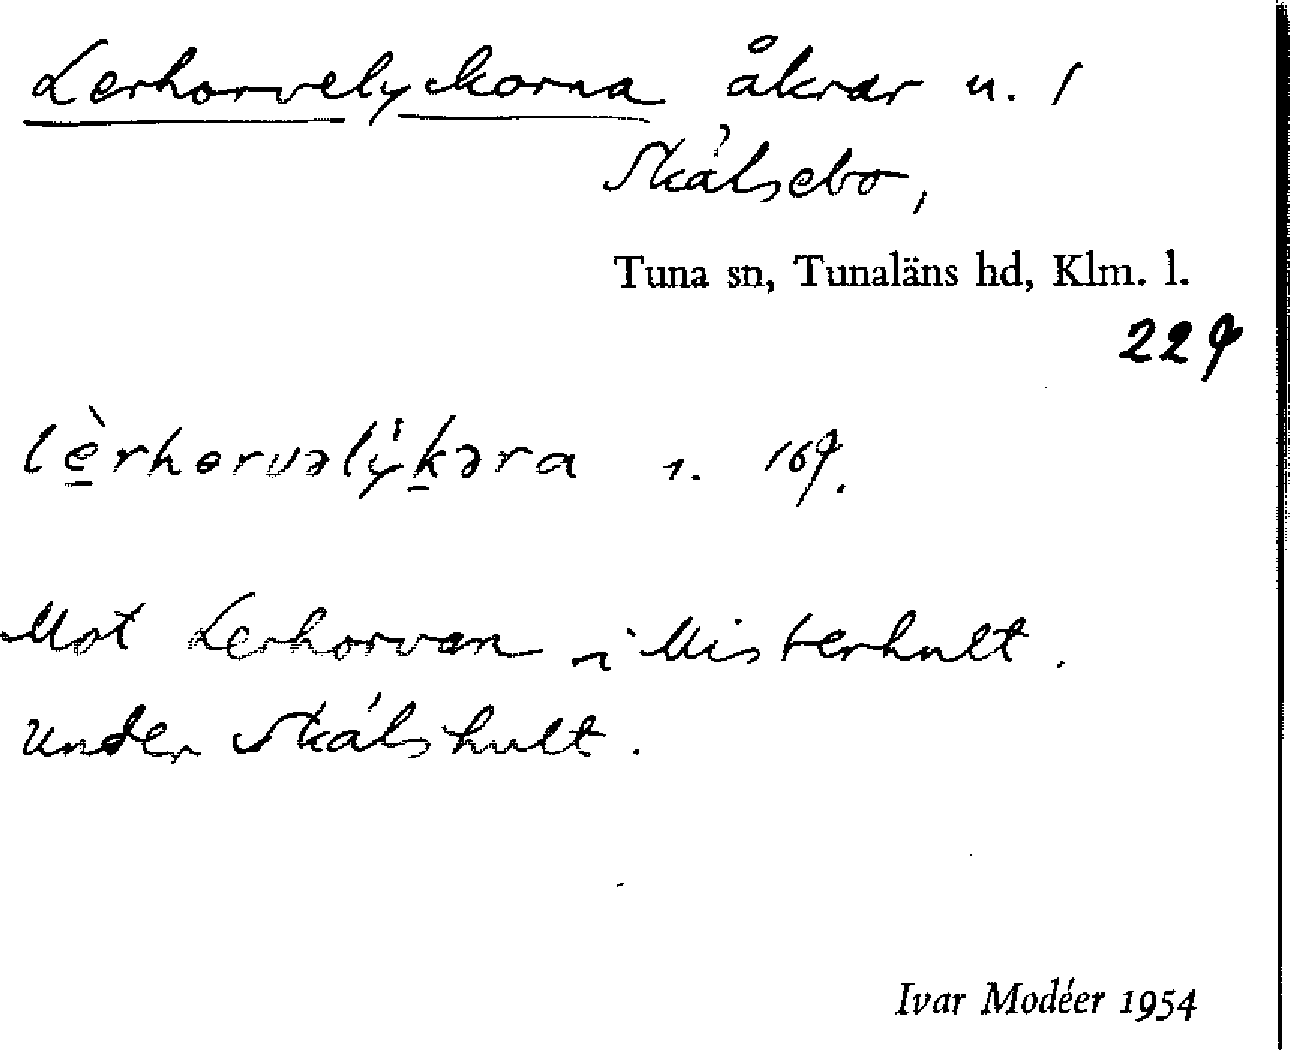 Lerhorvelyckorna åkrar u. 1
Skálsebo,
Tuna sn, Tunaläns hd, Klm. l.
229
lèrhorvəlýkəra 1. 169.
Mot Lerhorvan i Misterhult.
Under Skálshult.
Ivar Modéer 1954